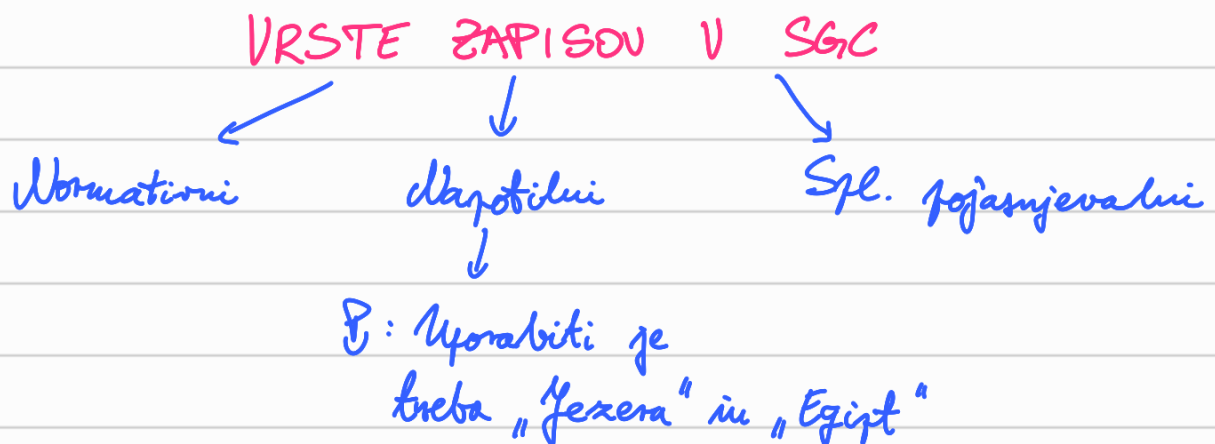 VRSTE ZAPISOV V SGC
Normativni Napotilni Spl. pojasnjevalni
P: Uporabiti je
treba „Jezera“ in „Egipt“